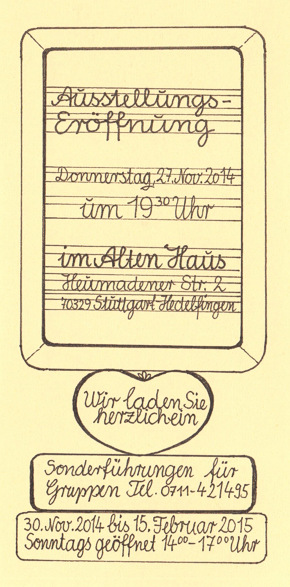 Ausstellungs-
Eröffnung
Donnerstag, 27. Nov. 2014
um 19³⁰ Uhr
im Alten Haus
Heumadener Str. 2
70329 Stuttgart-Hedelfingen
Wir laden Sie
herzlich ein
Sonderführungen für
Gruppen Tel. 0711-421495
30. Nov. 2014 bis 15. Februar 2015
Sonntags geöffnet 14⁰⁰-17⁰⁰ Uhr